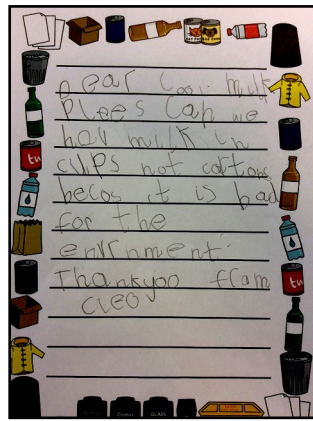 Dear Cool milk
Plees Can we
hav milk in
cups not cartons
becos it is bad
for the
envrnment.
Thankyoo from
cleo
GLASS